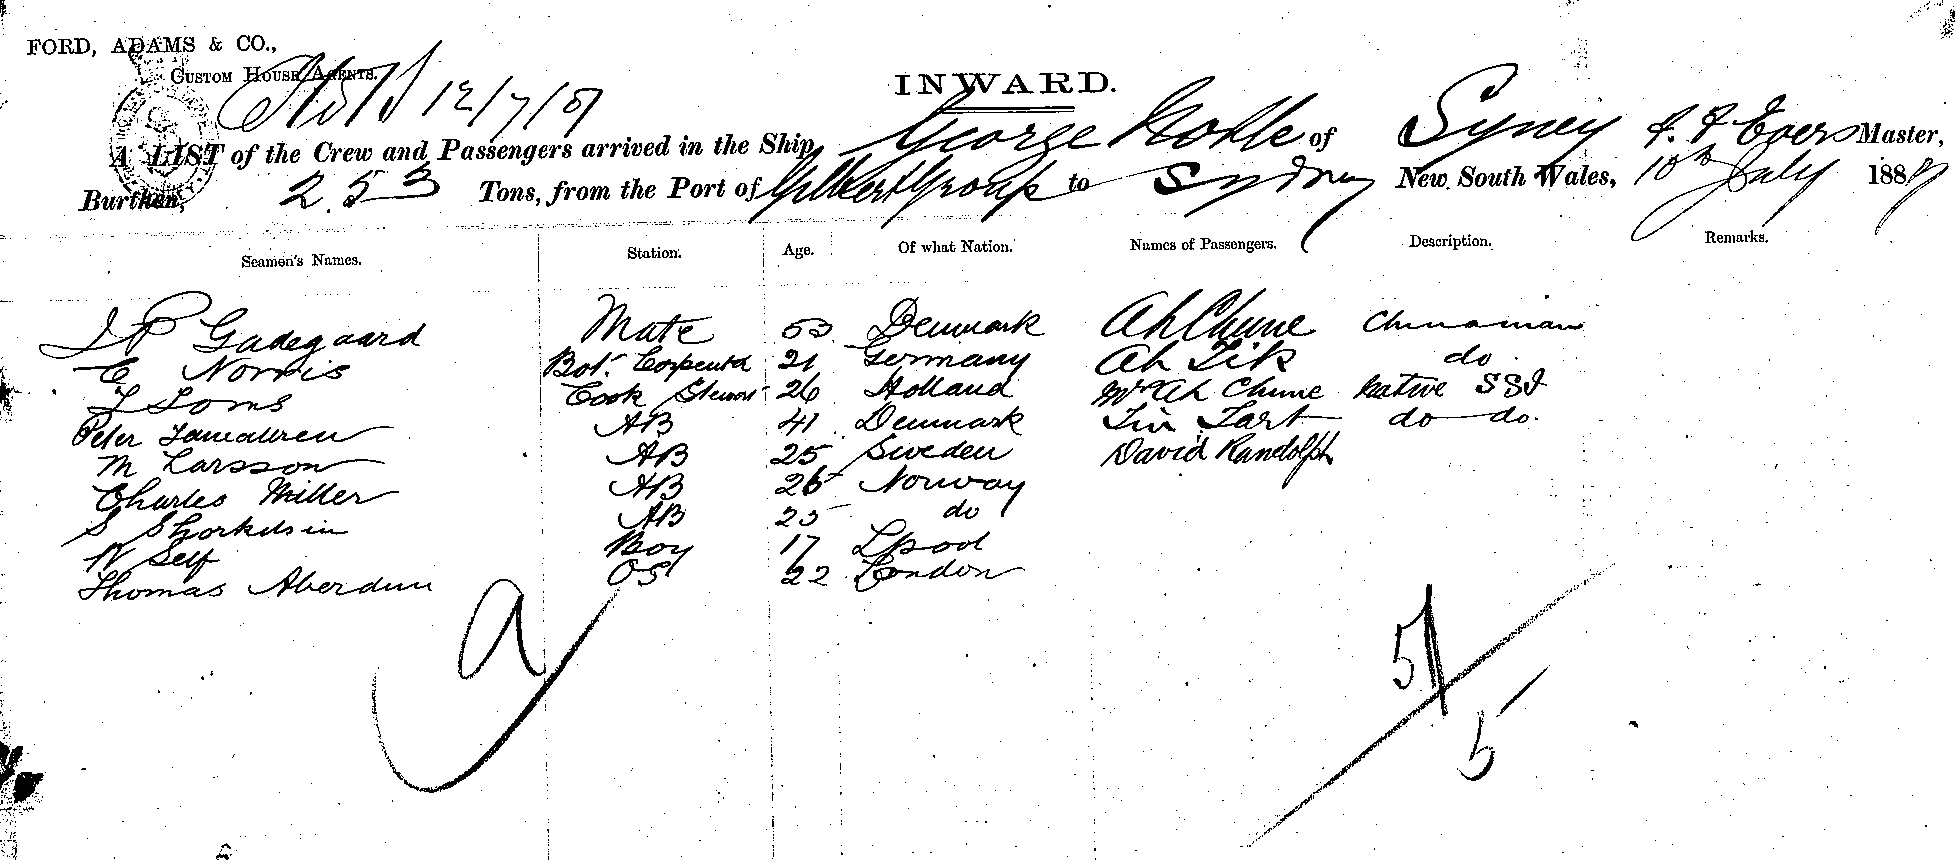 FORD, ADAMS & CO.,
CUSTOM HOUSE AGENTS.
12/7/87
INWARD.
A LIST of the Crew and Passengers arrived in the Ship George Noble of Syney Evers Master,
Burthen, 253 Tons, from the Port of Gilbert Group to Sydney New South Wales, 10th July 188
Seamen's Names. Station. Age. Of what Nation. Names of Passengers. Description. Remarks.
J P Gadegaard Mate 53 Denmark Ah Chune Chinaman
E Norris Bot. Carpenter 21 Germany Ah Tik do
Toms Cook Steward 26 Holland Mrs Ah Chune Native SSI
Peter AB 41 Denmark Tin Tart do do.
M Larsson AB 25 Sweden David Randolph
Charles Miller AB 26 Norway
S Thorkelsin AB 25 do
W Self Boy 17 Lpool
Thomas Aberdun OS 22 London
9
5
5